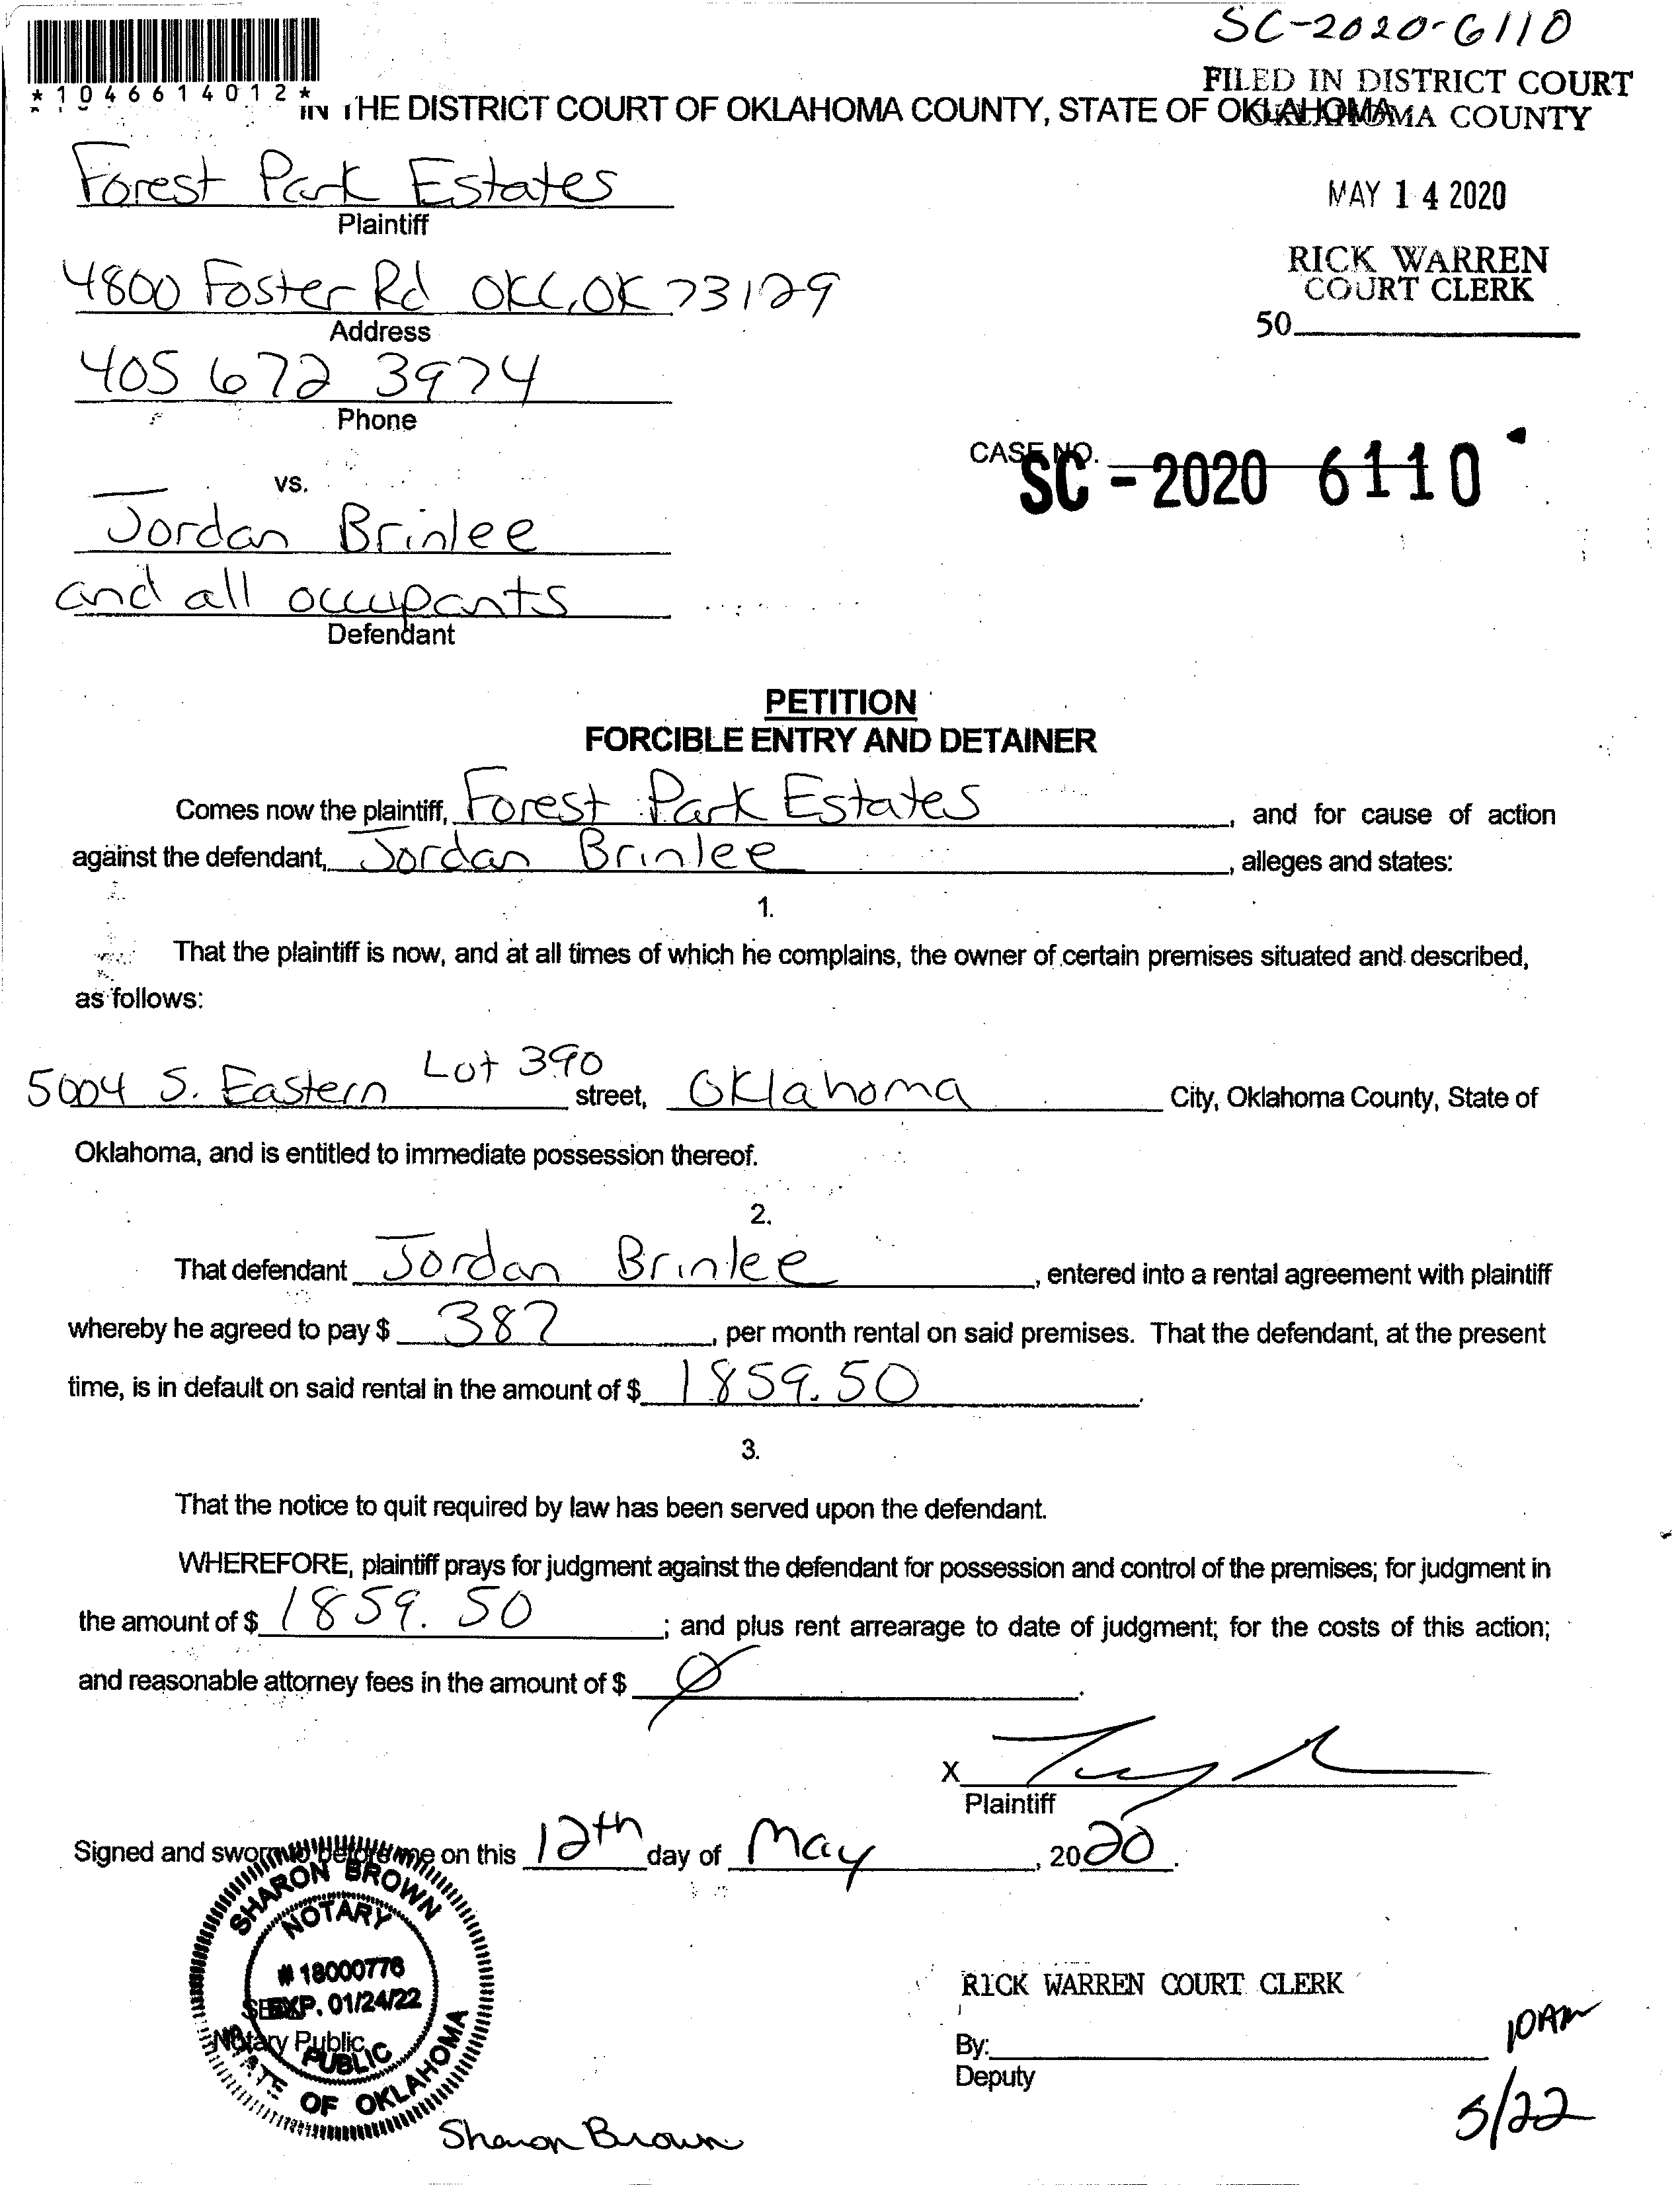 SC-2020-6110
FILED IN DISTRICT COURT
*1046614012*
IN THE DISTRICT COURT OF OKLAHOMA COUNTY, STATE OF OKLAHOMA
OKLAHOMA COUNTY
Forest Park Estates
Plaintiff
MAY 14 2020
RICK WARREN
COURT CLERK
4800 Foster Rd OKC, OK 73129
Address
50
405 672 3974
Phone
CASE NO.
SC - 2020 6110
vs.
Jordan Brinlee
and all occupants
Defendant
PETITION
FORCIBLE ENTRY AND DETAINER
Comes now the plaintiff, Forest Park Estates, and for cause of action
against the defendant, Jordan Brinlee, alleges and states:
1.
That the plaintiff is now, and at all times of which he complains, the owner of certain premises situated and described,
as follows:
5004 S. Eastern Lot 390 street, Oklahoma City, Oklahoma County, State of
Oklahoma, and is entitled to immediate possession thereof.
2.
That defendant Jordan Brinlee, entered into a rental agreement with plaintiff
whereby he agreed to pay $ 387, per month rental on said premises. That the defendant, at the present
time, is in default on said rental in the amount of $ 1859.50.
3.
That the notice to quit required by law has been served upon the defendant.
WHEREFORE, plaintiff prays for judgment against the defendant for possession and control of the premises; for judgment in
the amount of $ 1859.50; and plus rent arrearage to date of judgment; for the costs of this action;
and reasonable attorney fees in the amount of $ Ø.
X
Plaintiff
Signed and sworn to before me on this 12th day of May, 2020.
SHARON BROWN
NOTARY
# 18000776
EXP. 01/24/22
Notary Public
PUBLIC
STATE OF OKLAHOMA
Sharon Brown
RICK WARREN COURT CLERK
By:
Deputy
10AM
5/22